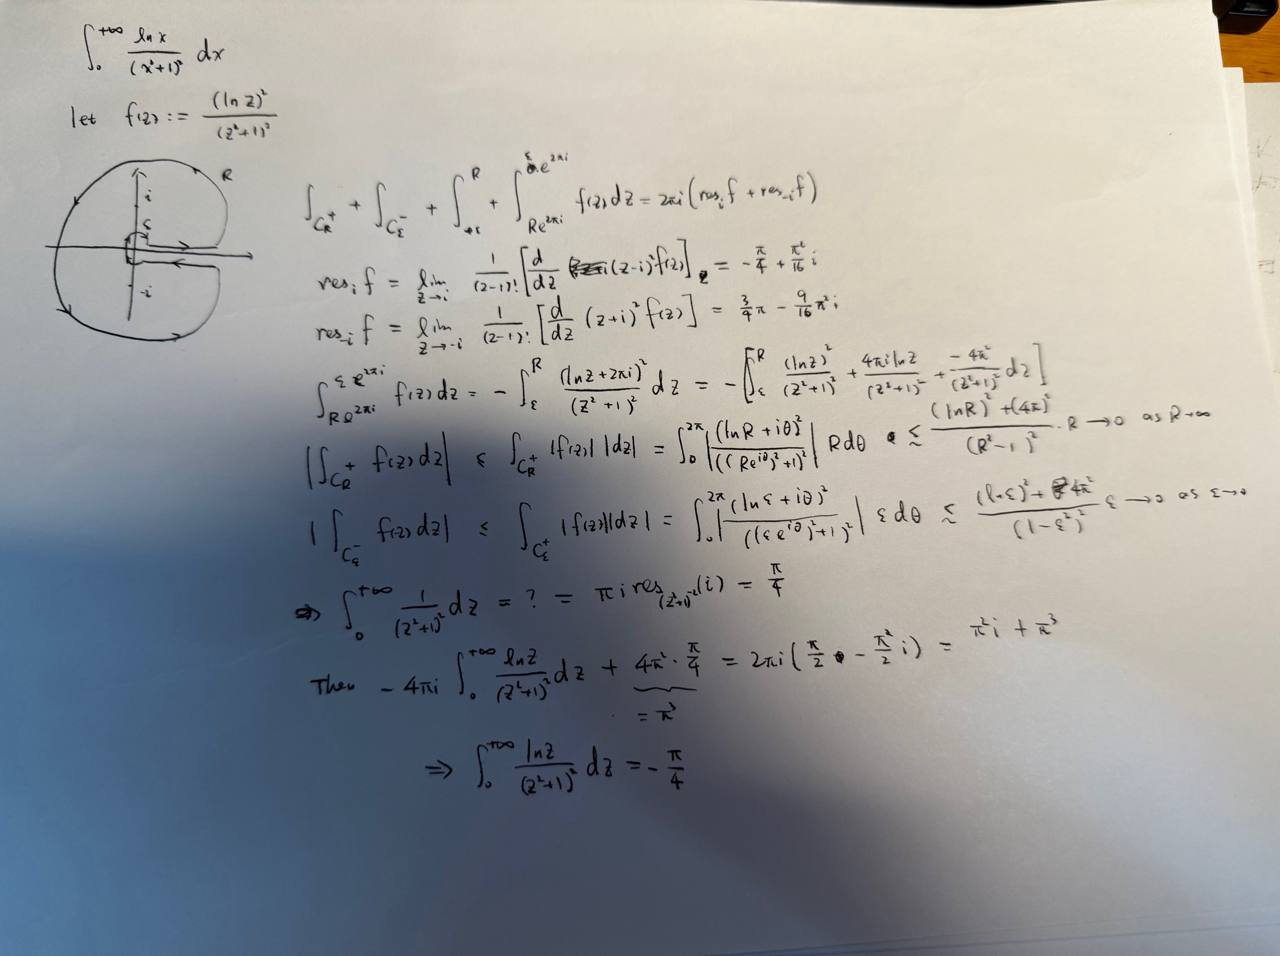 ∫₀^{+∞} ln x / (x²+1)² dx
let f(z) := (ln z)² / (z²+1)²
R
i
ε
-i
∫_{C_R^+} + ∫_{C_ε^-} + ∫_{+ε}^{R} + ∫_{Re^{2πi}}^{εe^{2πi}} f(z)dz = 2πi (res_i f + res_{-i} f)
res_i f = lim_{z→i} 1/(2-1)! [d/dz (z-i)² f(z)] = -π/4 + π²/16 i
res_{-i} f = lim_{z→-i} 1/(2-1)! [d/dz (z+i)² f(z)] = 3/4 π - 9/16 π² i
∫_{Re^{2πi}}^{εe^{2πi}} f(z)dz = - ∫_ε^R (ln z + 2πi)² / (z²+1)² dz = - [∫_ε^R (ln z)²/(z²+1)² + 4πi ln z/(z²+1)² + -4π²/(z²+1)² dz]
|∫_{C_R^+} f(z)dz| ≤ ∫_{C_R^+} |f(z)| |dz| = ∫₀^{2π} |(ln R + iθ)² / ((Re^{iθ})²+1)²| R dθ ≲ ((ln R)² + (4π)²) / (R²-1)² · R → 0 as R→∞
|∫_{C_ε^-} f(z)dz| ≤ ∫_{C_ε^+} |f(z)||dz| = ∫₀^{2π} |(ln ε + iθ)² / ((εe^{iθ})²+1)²| ε dθ ≲ ((ln ε)² + 4π²) / (1-ε²)² ε → 0 as ε→0
⇒ ∫₀^{+∞} 1/(z²+1)² dz = ? = πi res_{(z²+1)^{-2}}(i) = π/4
Then -4πi ∫₀^{+∞} ln z/(z²+1)² dz + 4π² · π/4 = 2πi (π/2 - π²/2 i) = π² i + π³
= π³
⇒ ∫₀^{+∞} ln z/(z²+1)² dz = - π/4